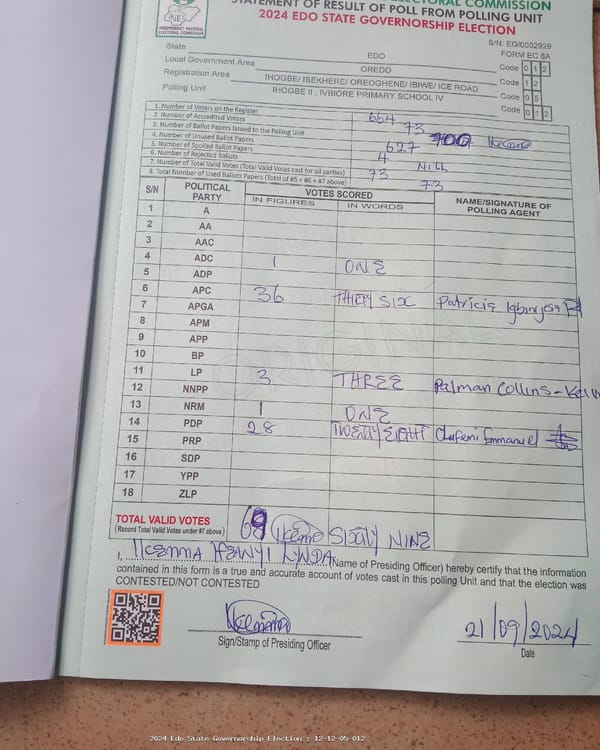 INDEPENDENT NATIONAL ELECTORAL COMMISSION
STATEMENT OF RESULT OF POLL FROM POLLING UNIT
2024 EDO STATE GOVERNORSHIP ELECTION
S/N: EG/0002929
FORM EC 8A
State EDO
Local Government Area OREDO Code 0 1 2
Registration Area IHOGBE/ ISEKHERE/ OREOGHENE/ IBIWE/ ICE ROAD Code 1 2
Polling Unit IHOGBE II , IVBIORE PRIMARY SCHOOL IV Code 0 5
Code 0 1 2
1. Number of Voters on the Register 664
2. Number of Accredited Voters 73
3. Number of Ballot Papers Issued to the Polling Unit 700
4. Number of Unused Ballot Papers 627
5. Number of Spoiled Ballot Papers NILL
6. Number of Rejected Ballots 4
7. Number of Total Valid Votes (Total Valid Votes cast for all parties) 73
8. Total Number of Used Ballots Papers (Total of #5 + #6 + #7 above) 73
S/N POLITICAL PARTY VOTES SCORED NAME/SIGNATURE OF POLLING AGENT
IN FIGURES IN WORDS
1 A
2 AA
3 AAC
4 ADC 1 ONE
5 ADP
6 APC 36 THIRTY SIX Patricia
7 APGA
8 APM
9 APP
10 BP
11 LP 3 THREE Palman Collins-
12 NNPP
13 NRM 1 ONE
14 PDP 28 TWENTY EIGHT Emmanuel
15 PRP
16 SDP
17 YPP
18 ZLP
ORIGINAL
TOTAL VALID VOTES 69 SIXTY NINE
(Record Total Valid Votes under #7 above)
I, IKENNA IFEANYI LYNDA (Name of Presiding Officer) hereby certify that the information
contained in this form is a true and accurate account of votes cast in this polling Unit and that the election was
CONTESTED/NOT CONTESTED
21/09/2024
Sign/Stamp of Presiding Officer Date
2024 Edo State Governorship Election : 12-12-05-012